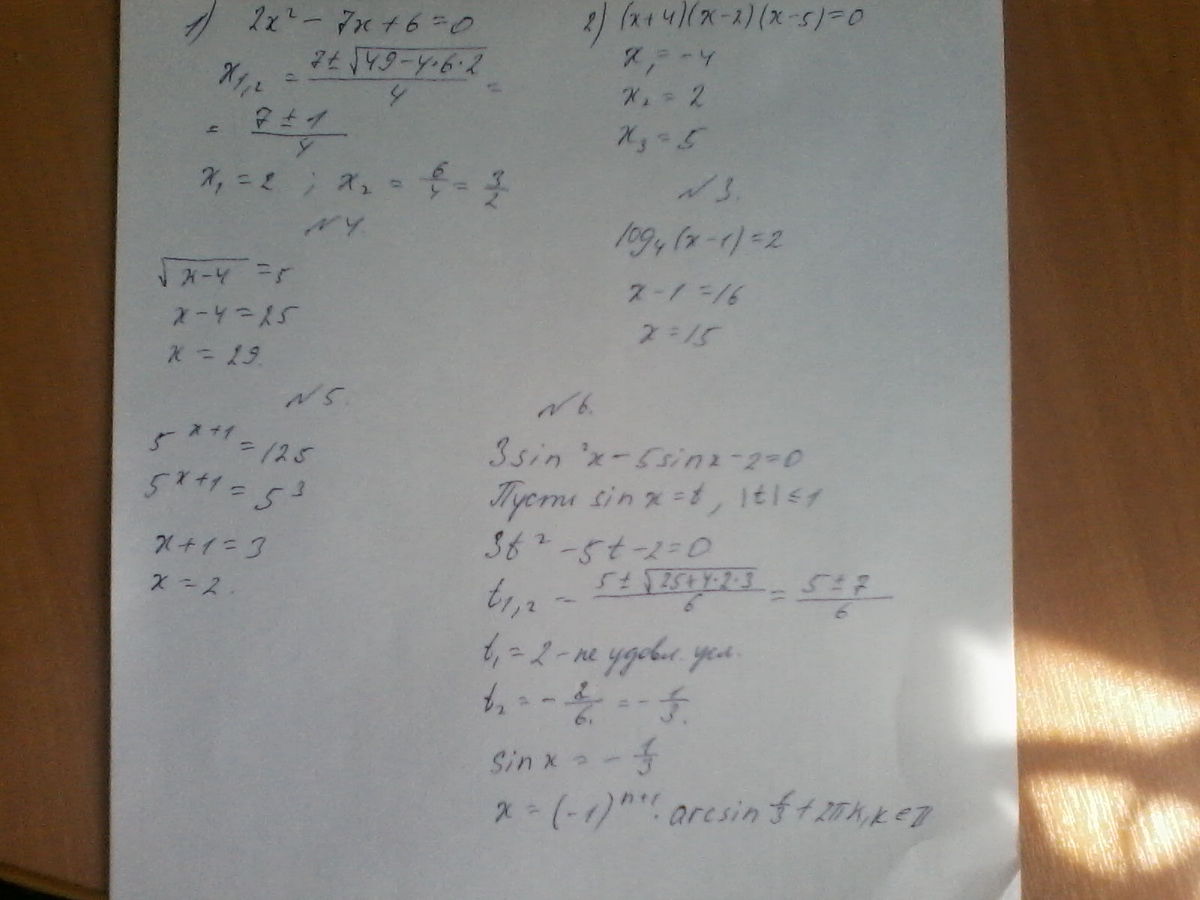 1) 2x² − 7x + 6 = 0
x₁,₂ = (7 ± √(49 − 4·6·2))/4 =
= (7 ± 1)/4
x₁ = 2 ; x₂ = 6/4 = 3/2
2) (x+4)(x−2)(x−5) = 0
x₁ = −4
x₂ = 2
x₃ = 5
№3.
log₄(x−1) = 2
x − 1 = 16
x = 15
№4.
√(x−4) = 5
x − 4 = 25
x = 29.
№5.
5^(x+1) = 125
5^(x+1) = 5³
x + 1 = 3
x = 2.
№6.
3sin²x − 5sinx − 2 = 0
Пусть sin x = t, |t| ≤ 1
3t² − 5t − 2 = 0
t₁,₂ = (5 ± √(25+4·2·3))/6 = (5 ± 7)/6
t₁ = 2 – не удовл. усл.
t₂ = −2/6 = −1/3.
sin x = −1/3
x = (−1)^(n+1) · arcsin 1/3 + 2πk, k ∈ ℤ